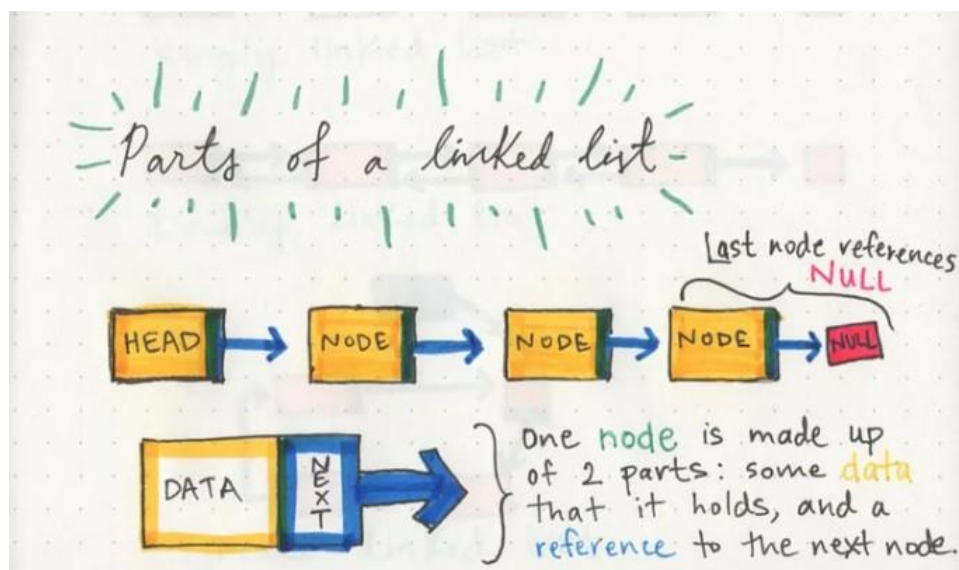 Parts of a linked list
Last node references
NULL
HEAD NODE NODE NODE NULL
DATA NEXT
One node is made up
of 2 parts: some data
that it holds, and a
reference to the next node.